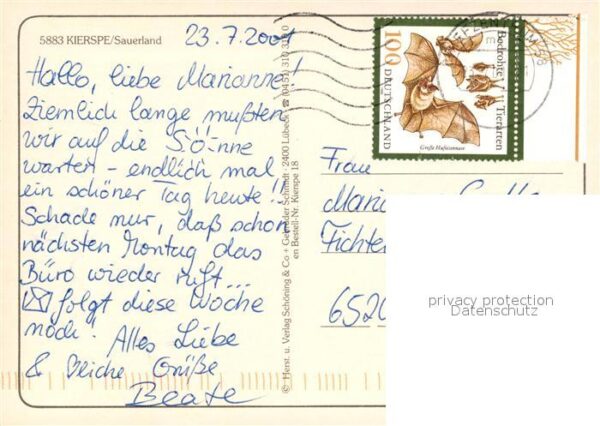 5883 KIERSPE/Sauerland
23.7.2001
Hallo, liebe Marianne!
Ziemlich lange mußten
wir auf die SÖ-nne
warten - endlich mal
ein schöner Tag heute!!
Schade nur, daß schon
nächsten Montag das
Büro wieder ruft...
folgt diese Woche
noch! Alles Liebe
& Grüße
Beate
© Herst. u. Verlag Schöning & Co + Gebrüder Schmidt · 2400 Lübeck ☎ (0451) 310
en Bestell-Nr. Kierspe 18
100
DEUTSCHLAND
Bedrohte Tierarten
Große Hufeisennase
Frau
Fichten
privacy protection
Datenschutz